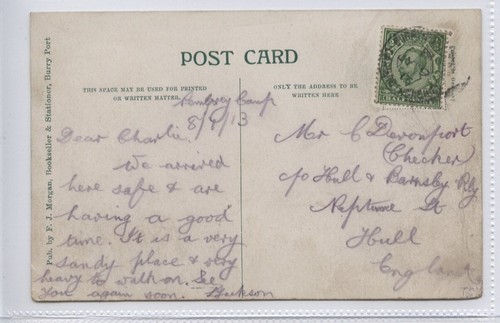 POST CARD
THIS SPACE MAY BE USED FOR PRINTED
OR WRITTEN MATTER.
ONLY THE ADDRESS TO BE
WRITTEN HERE.
Pub. by F. J. Morgan, Bookseller & Stationer, Burry Port
Pembrey Camp
8/9/13
Dear Charlie.
We arrived
here safe & are
having a good
time. It is a very
sandy place & very
heavy to walk on. See
you again soon. Jackson
Mr C Davenport
(Checker)
c/o Hull & Barnsley Rly
Neptune St
Hull
England